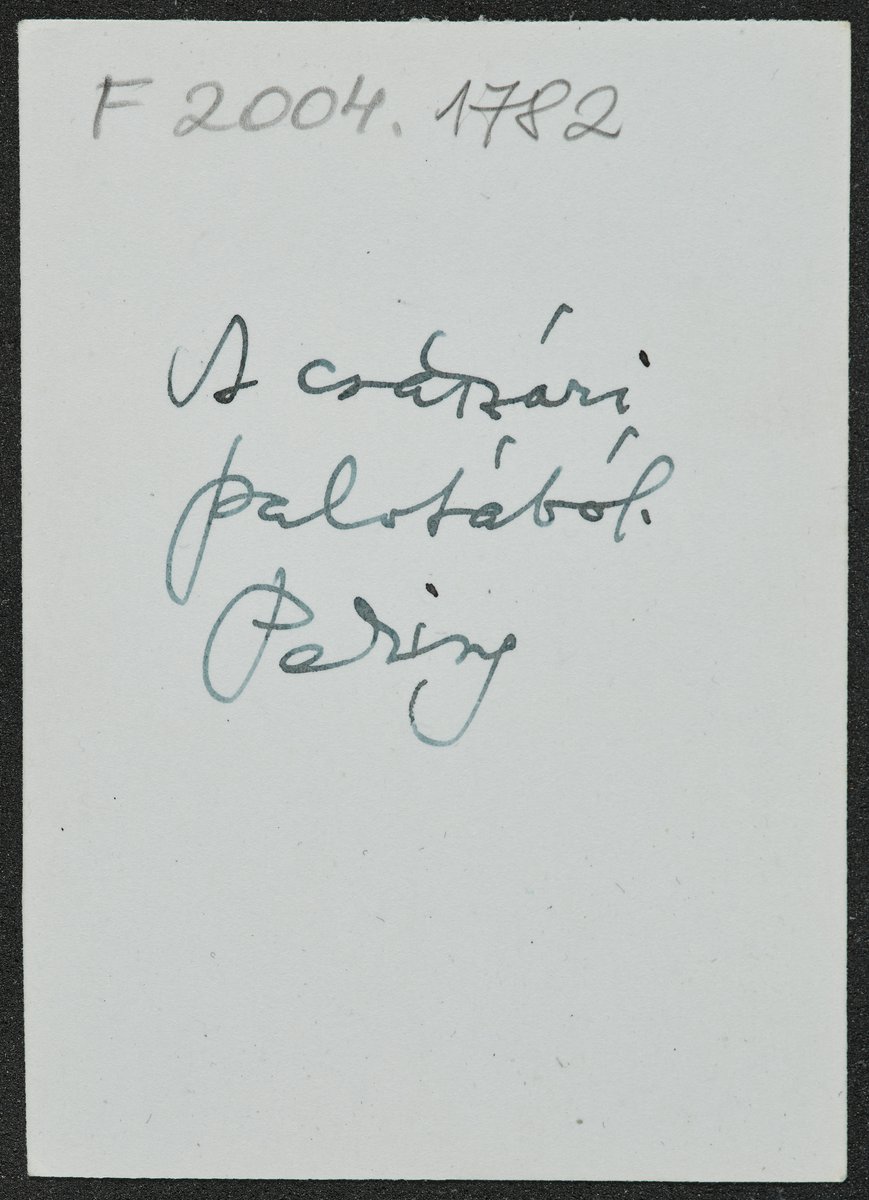 F 2004. 1782
A császári
palotából.
Peking